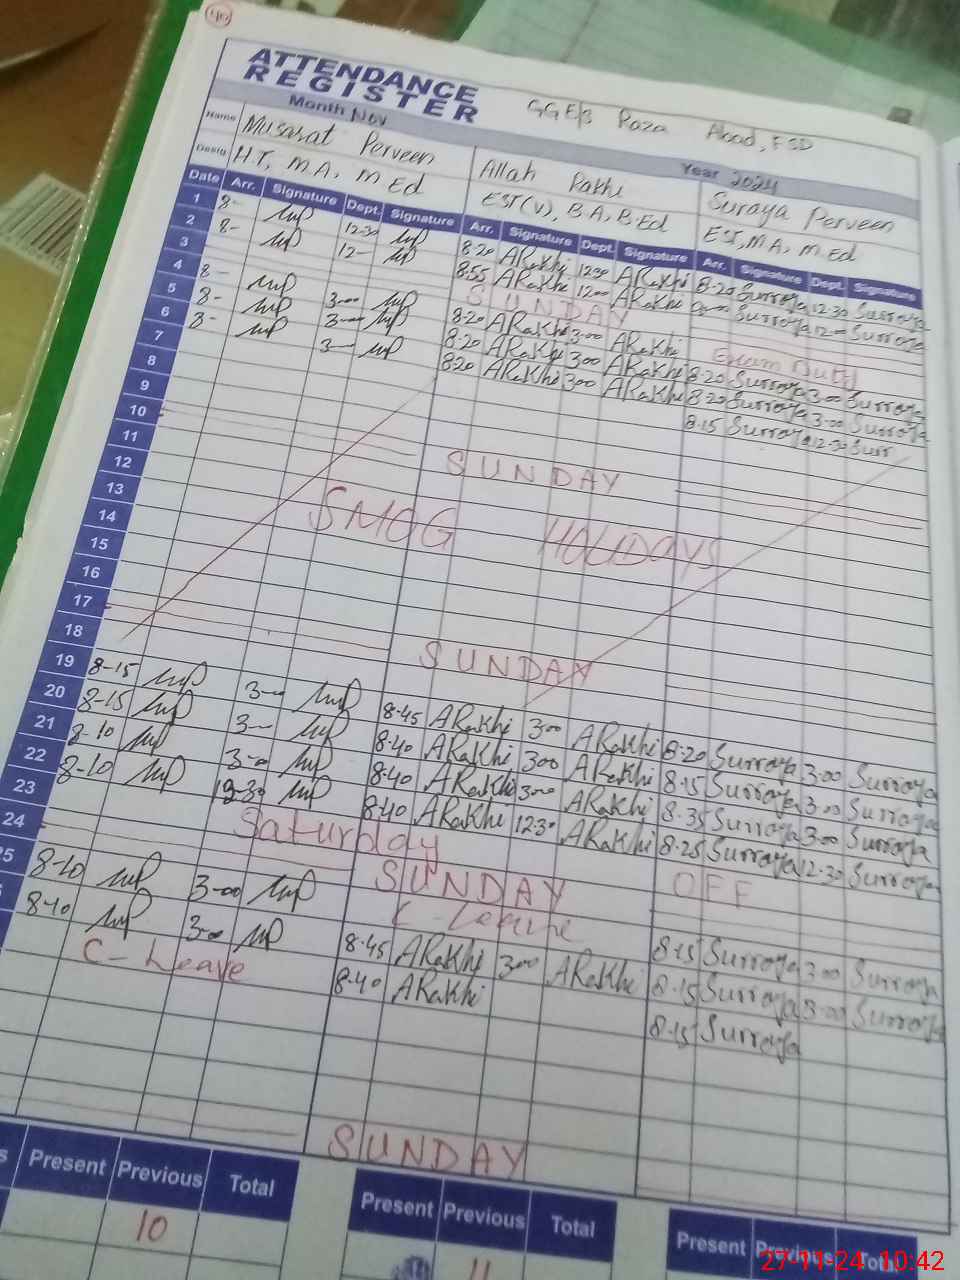 40
ATTENDANCE
REGISTER
GGE/S Raza Abad, FSD
Month Nov
Year 2024
Name Musarat Perveen
Allah Rakhi
Suraya Perveen
Desig H.T, M.A, M Ed
EST(V), B.A, B.Ed
EST, M.A, M.Ed
Date Arr. Signature Dept. Signature Arr. Signature Dept. Signature Arr. Signature Dept. Signature
1 8- 12-30 8-20 ARakhi 1230 ARakhi 8-20 Surraya 12-30 Surraya
2 8- 12- 8:55 ARakhi 1200 ARakhi Surraya 12-00 Surraya
3 SUNDAY
4 8- 3-00 8-20 ARakhi 3:00 ARakhi Exam Duty
5 8- 3-00 8-20 ARakhi 300 ARakhi 8-20 Surraya 3-00 Surraya
6 8- 3- 820 ARakhi 300 ARakhi 8-20 Surraya 3-00 Surraya
7 8-15 Surraya 12-30 Surr
8
9
10 SUNDAY
11
12
13 SMOG HOLIDAYS
14
15
16
17 SUNDAY
18
19 8-15 3- 8-45 ARakhi 300 ARakhi 8-20 Surraya 3-00 Surraya
20 8-15 3- 8-40 ARakhi 300 ARakhi 8-15 Surraya 3-00 Surraya
21 8-10 3-00 8-40 ARakhi 300 ARakhi 8-35 Surraya 3-00 Surraya
22 8-10 12-30 8-40 ARakhi 12-30 ARakhi 8-25 Surraya 12-30 Surraya
23 Saturday OFF
24 SUNDAY
25 8-20 3-00 C-Leave 8-15 Surraya 3-00 Surraya
8-10 3-00 8-45 ARakhi 300 ARakhi 8-15 Surraya 3-00 Surraya
C-Leave 8-40 ARakhi 8-15 Surraya
SUNDAY
Present Previous Total Present Previous Total Present Previous Total
10 11
27-11-24 10:42